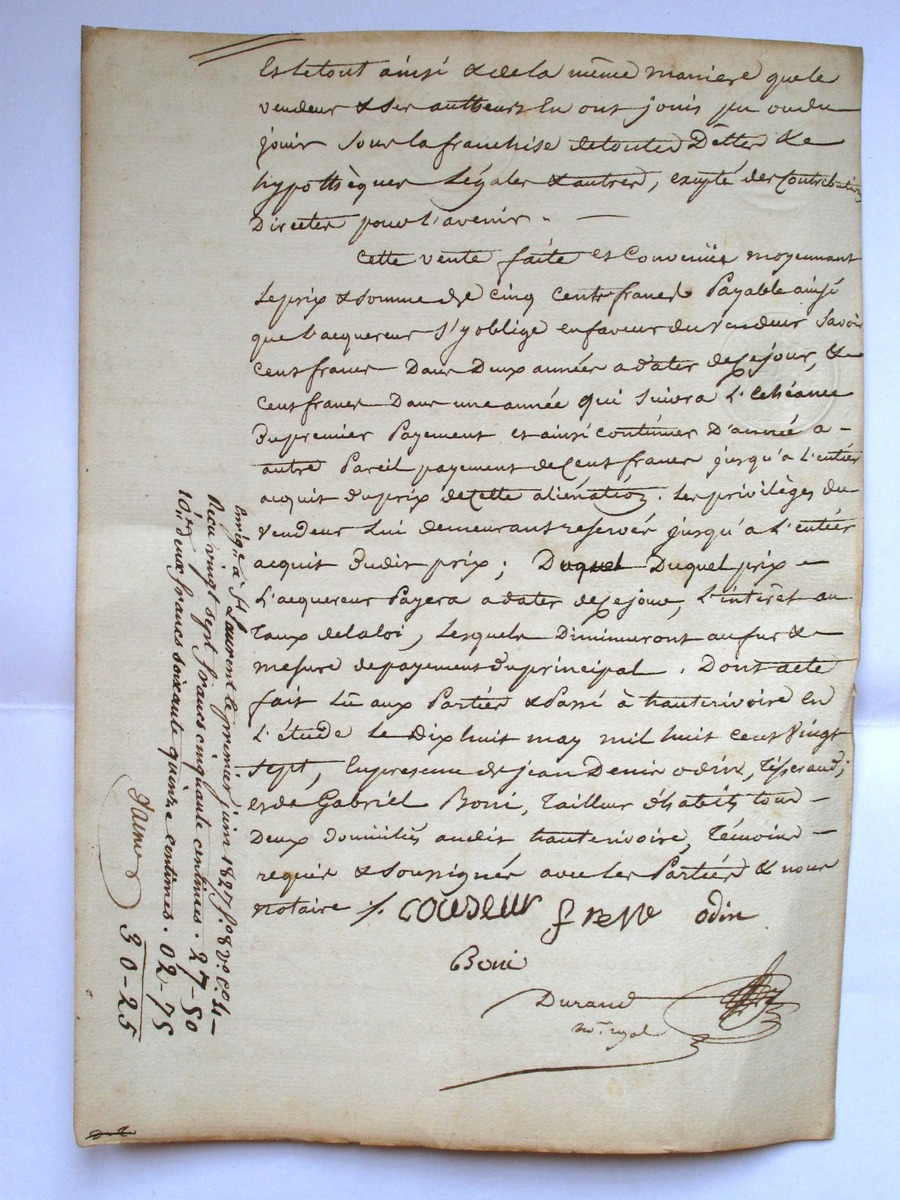 Et le tout ainsi & de la même maniere que le
vendeur & ses autheurs en ont jouis pu ou du
jouir sous la franchise de toutes Dettes & de
hypothèques Légales & autres, exepté des Contributions
Directes pour l'avenir. —
Cette vente faite et Convenüe moyennant
Le prix & somme de cinq Cents francs Payable ainsi
que l'acquereur s'y oblige en faveur du vendeur savoir
Cent francs Dans Deux années a dater de Ce jour, &
Cent francs Dans une année qui suivra L'echéance
Du premier Payement et ainsi continuer D'année a -
autre Pareil payement de Cent francs jusqu'a L'entier
acquit du prix de Cette aliénation. Les privilèges du
vendeur Lui demeurant reservés jusqu'a L'entier
acquit Dudit prix; Duquel Duquel prix -
L'acquereur Payera a dater de Ce jour, L'intérêt au
Taux de la loi, Lesquels Diminuront au fur & a
mesure de payement du principal. Dont acte
fait Lû aux Parties & Passé à hauterivoire en
L'étude Le Dix huit may mil huit cent Vingt
Sept, En presence de jean Denis odin, Tisserand;
et de Gabriel Boni, Tailleur d'habits tous -
Deux domiciliés audit hauterivoire, Témoins -
requis & soussignés avec les Parties & nous
notaire ./.
couseur
odin
Boni
Durand
no.re royal
Enrig.é à St Laurent le premier juin 1827 f.o 8 v.o C.e 4 -
Recu vingt sept francs cinquante centimes. 27-50
10.me deux francs soixante quinze centimes. 02-75
30-25